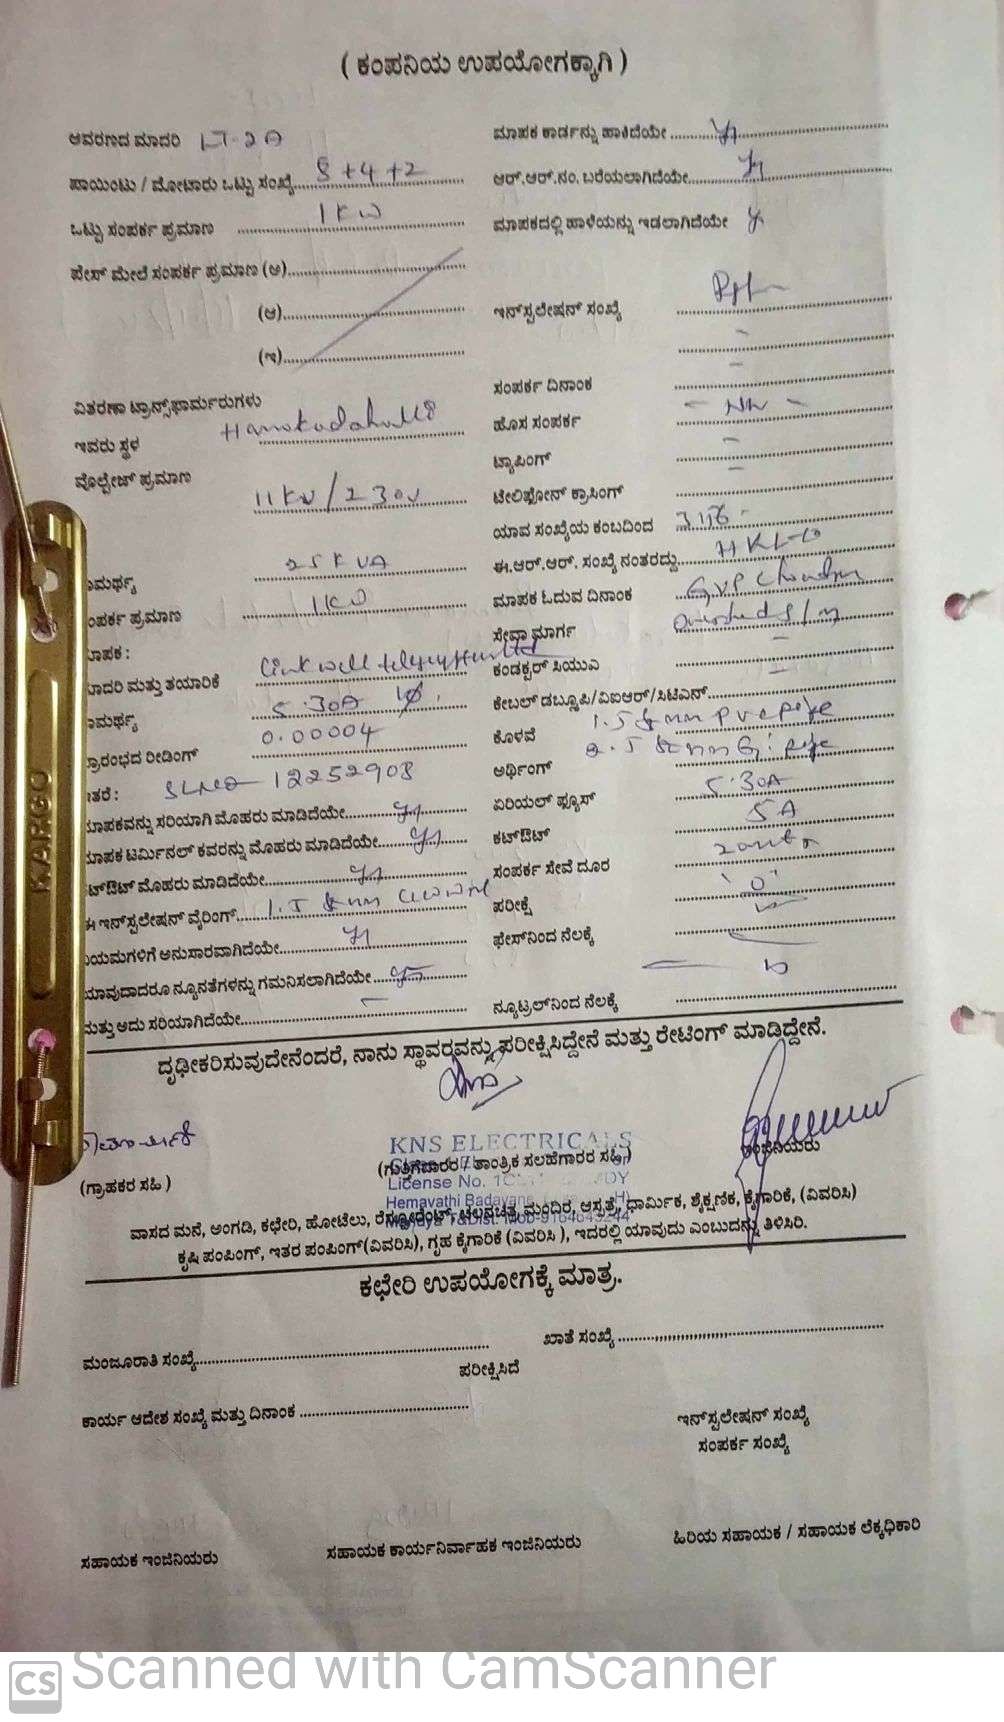 ( ಕಂಪನಿಯ ಉಪಯೋಗಕ್ಕಾಗಿ )
ಆವರಣದ ಮಾದರಿ LT-2A
ಪಾಯಿಂಟು / ಮೋಟಾರು ಒಟ್ಟು ಸಂಖ್ಯೆ 8+4+2
ಒಟ್ಟು ಸಂಪರ್ಕ ಪ್ರಮಾಣ 1KW
ಪೇಸ್ ಮೇಲೆ ಸಂಪರ್ಕ ಪ್ರಮಾಣ (ಅ)
(ಆ)
(ಇ)
ವಿತರಣಾ ಟ್ರಾನ್ಸ್‌ಫಾರ್ಮರುಗಳು
ಇವರು ಸ್ಥಳ
ವೊಲ್ಟೇಜ್ ಪ್ರಮಾಣ
11KV/230V
ಾಮರ್ಥ್ಯ 25KVA
ಂಪರ್ಕ ಪ್ರಮಾಣ 1KW
ಾಪಕ :
ಾದರಿ ಮತ್ತು ತಯಾರಿಕೆ
ಾಮರ್ಥ್ಯ 5-30A
್ರಾರಂಭದ ರೀಡಿಂಗ್ 0.00004
ತರೆ : SLNO 12252908
ಾಪಕವನ್ನು ಸರಿಯಾಗಿ ಮೊಹರು ಮಾಡಿದೆಯೇ
ಾಪಕ ಟರ್ಮಿನಲ್ ಕವರನ್ನು ಮೊಹರು ಮಾಡಿದೆಯೇ
ಟ್‌ಔಟ್ ಮೊಹರು ಮಾಡಿದೆಯೇ
ಈ ಇನ್‌ಸ್ಪಲೇಷನ್ ವೈರಿಂಗ್
ಿಯಮಗಳಿಗೆ ಅನುಸಾರವಾಗಿದೆಯೇ
ಯಾವುದಾದರೂ ನ್ಯೂನತೆಗಳನ್ನು ಗಮನಿಸಲಾಗಿದೆಯೇ
ಮತ್ತು ಅದು ಸರಿಯಾಗಿದೆಯೇ
ಮಾಪಕ ಕಾರ್ಡನ್ನು ಹಾಕಿದೆಯೇ
ಆರ್.ಆರ್.ನಂ. ಬರೆಯಲಾಗಿದೆಯೇ
ಮಾಪಕದಲ್ಲಿ ಹಾಳೆಯನ್ನು ಇಡಲಾಗಿದೆಯೇ
ಇನ್‌ಸ್ಪಲೇಷನ್ ಸಂಖ್ಯೆ
ಸಂಪರ್ಕ ದಿನಾಂಕ
ಹೊಸ ಸಂಪರ್ಕ
ಟ್ಯಾಪಿಂಗ್
ಟೇಲಿಫೋನ್ ಕ್ರಾಸಿಂಗ್
ಯಾವ ಸಂಖ್ಯೆಯ ಕಂಬದಿಂದ
ಈ.ಆರ್.ಆರ್. ಸಂಖ್ಯೆ ನಂತರದ್ದು
ಮಾಪಕ ಓದುವ ದಿನಾಂಕ
ಸೇವಾ ಮಾರ್ಗ
ಕಂಡಕ್ಟರ್ ಸಿಯುಎ
ಕೇಬಲ್ ಡಬ್ಲೂಪಿ/ವಿಐಆರ್/ಸಿಟಿಎಸ್
ಕೊಳವೆ
ಅರ್ಥಿಂಗ್
ಏರಿಯಲ್ ಫ್ಯೂಸ್ 5-30A
ಕಟ್‌ಔಟ್ 5A
ಸಂಪರ್ಕ ಸೇವೆ ದೂರ
ಪರೀಕ್ಷೆ 'O'
ಫೇಸ್‌ನಿಂದ ನೆಲಕ್ಕೆ
ನ್ಯೂಟ್ರಲ್‌ನಿಂದ ನೆಲಕ್ಕೆ
ದೃಢೀಕರಿಸುವುದೇನೆಂದರೆ, ನಾನು ಸ್ಥಾವರವನ್ನು ಪರೀಕ್ಷಿಸಿದ್ದೇನೆ ಮತ್ತು ರೇಟಿಂಗ್ ಮಾಡಿದ್ದೇನೆ.
KNS ELECTRICALS
(ಗ್ರಾಹಕರ ಸಹಿ )
(ಗುತ್ತಿಗೆದಾರರ / ತಾಂತ್ರಿಕ ಸಲಹೆಗಾರರ ಸಹಿ)
License No.
Hemavathi
ವಾಸದ ಮನೆ, ಅಂಗಡಿ, ಕಛೇರಿ, ಹೋಟೆಲು, ರೆಸ್ಟೋರೆಂಟ್, ಚಲನಚಿತ್ರ ಮಂದಿರ, ಆಸ್ಪತ್ರೆ, ಧಾರ್ಮಿಕ, ಶೈಕ್ಷಣಿಕ, ಕೈಗಾರಿಕೆ, (ವಿವರಿಸಿ)
ಕೃಷಿ ಪಂಪಿಂಗ್, ಇತರ ಪಂಪಿಂಗ್(ವಿವರಿಸಿ), ಗೃಹ ಕೈಗಾರಿಕೆ (ವಿವರಿಸಿ ), ಇದರಲ್ಲಿ ಯಾವುದು ಎಂಬುದನ್ನು ತಿಳಿಸಿರಿ.
ಕಛೇರಿ ಉಪಯೋಗಕ್ಕೆ ಮಾತ್ರ.
ಮಂಜೂರಾತಿ ಸಂಖ್ಯೆ
ಖಾತೆ ಸಂಖ್ಯೆ
ಪರೀಕ್ಷಿಸಿದೆ
ಕಾರ್ಯ ಆದೇಶ ಸಂಖ್ಯೆ ಮತ್ತು ದಿನಾಂಕ
ಇನ್‌ಸ್ಪಲೇಷನ್ ಸಂಖ್ಯೆ
ಸಂಪರ್ಕ ಸಂಖ್ಯೆ
ಸಹಾಯಕ ಇಂಜಿನಿಯರು
ಸಹಾಯಕ ಕಾರ್ಯನಿರ್ವಾಹಕ ಇಂಜಿನಿಯರು
ಹಿರಿಯ ಸಹಾಯಕ / ಸಹಾಯಕ ಲೆಕ್ಕಧಿಕಾರಿ
KARGO
CS Scanned with CamScanner